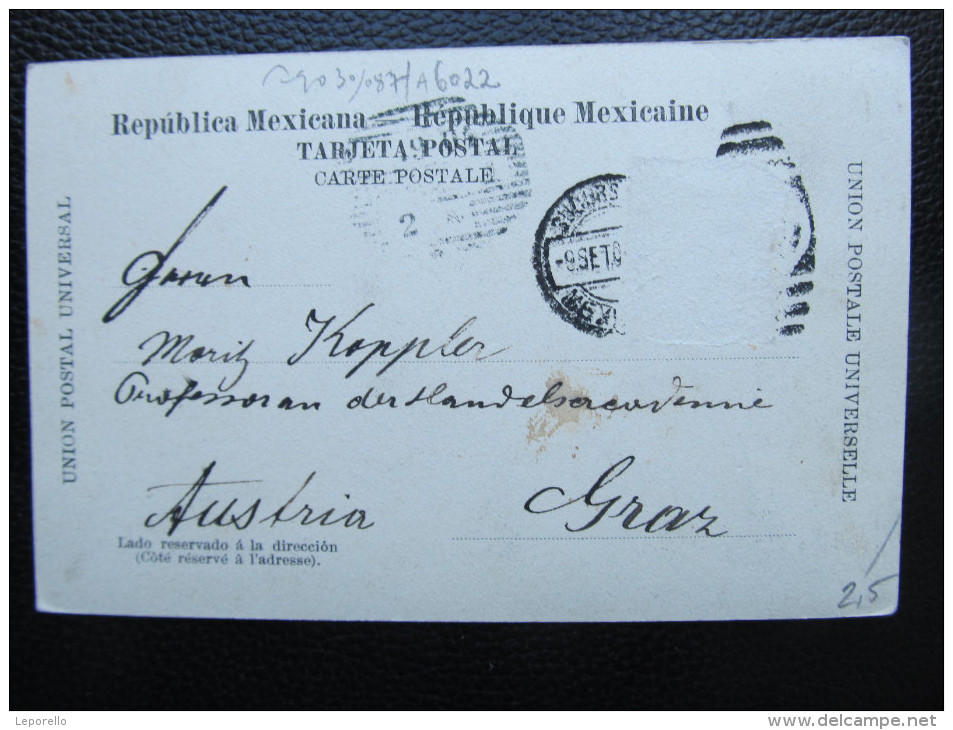 A6022
República Mexicana — République Mexicaine
TARJETA POSTAL
CARTE POSTALE
UNION POSTAL UNIVERSAL
UNION POSTALE UNIVERSELLE
2
9 SET
MEX
Herrn
Moritz Koppler
Professor an der Handelsacademie
Austria Graz
Lado reservado á la dirección
(Côté réservé à l'adresse).
2,5
Leporello
www.delcampe.net